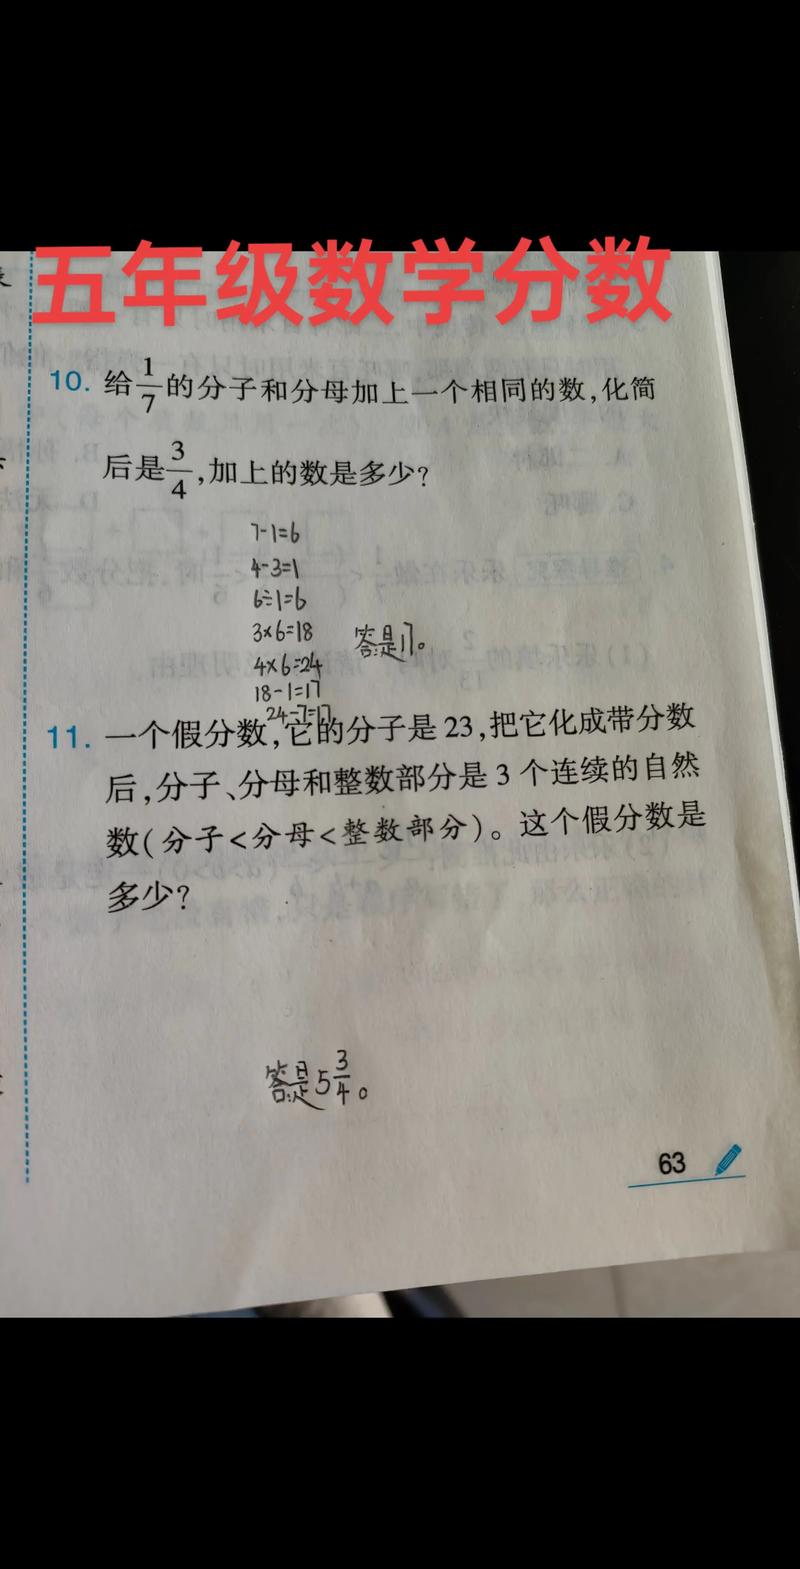 五年级数学分数
10. 给1/7的分子和分母加上一个相同的数,化简
后是3/4,加上的数是多少?
7-1=6
4-3=1
6÷1=6
3×6=18
答:是17。
4×6=24
18-1=17
24-7=17
11. 一个假分数,它的分子是23,把它化成带分数
后,分子、分母和整数部分是3个连续的自然
数(分子<分母<整数部分)。这个假分数是
多少?
答:是5 3/4。
63